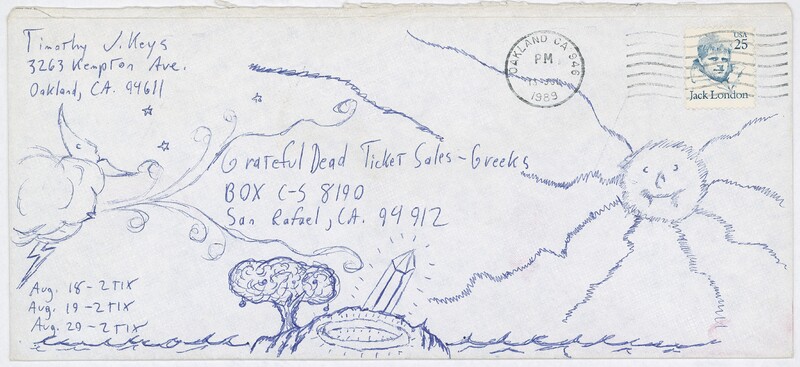 Timothy J. Keys
3263 Kempton Ave.
Oakland, CA. 94611
OAKLAND CA 946
PM
1989
USA
25
Jack London
Grateful Dead Ticket Sales - Greeks
BOX C-S 8190
San Rafael, CA. 94912
Aug. 18 - 2 TIX
Aug. 19 - 2 TIX
Aug. 20 - 2 TIX